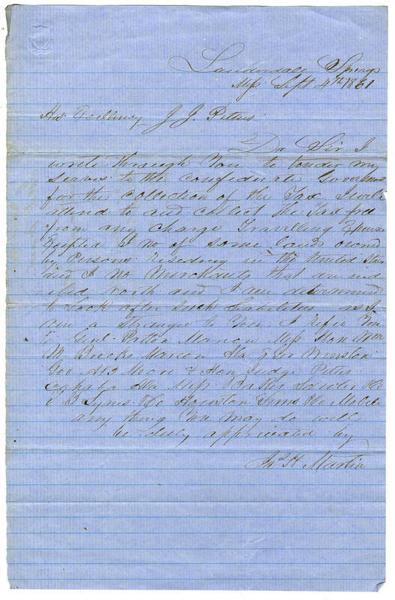 Lauderdale Springs
Miss Sept 4th 1861
His Excellency J. J. Pettus
Dr Sir I
write through You to tender my
services to the confederate Government
for the collection of the Tax I will
attend to and collect the Tax free
from any charge Travelling Expenses
Excepted I no of some lands owned
by Persons residing in the United States
and I no Merchants that are
north and I am determined
to look after such liabilities as I
am a Stranger to You I refer You
to Genl Patton Marion Miss Hon Wm
M. Brooks Marion Ala Gov Winston
Gov A B Moore & Hon Judge
Miss
Houston Mobile
any thing You may do will
be duly appreciated by
H Martin